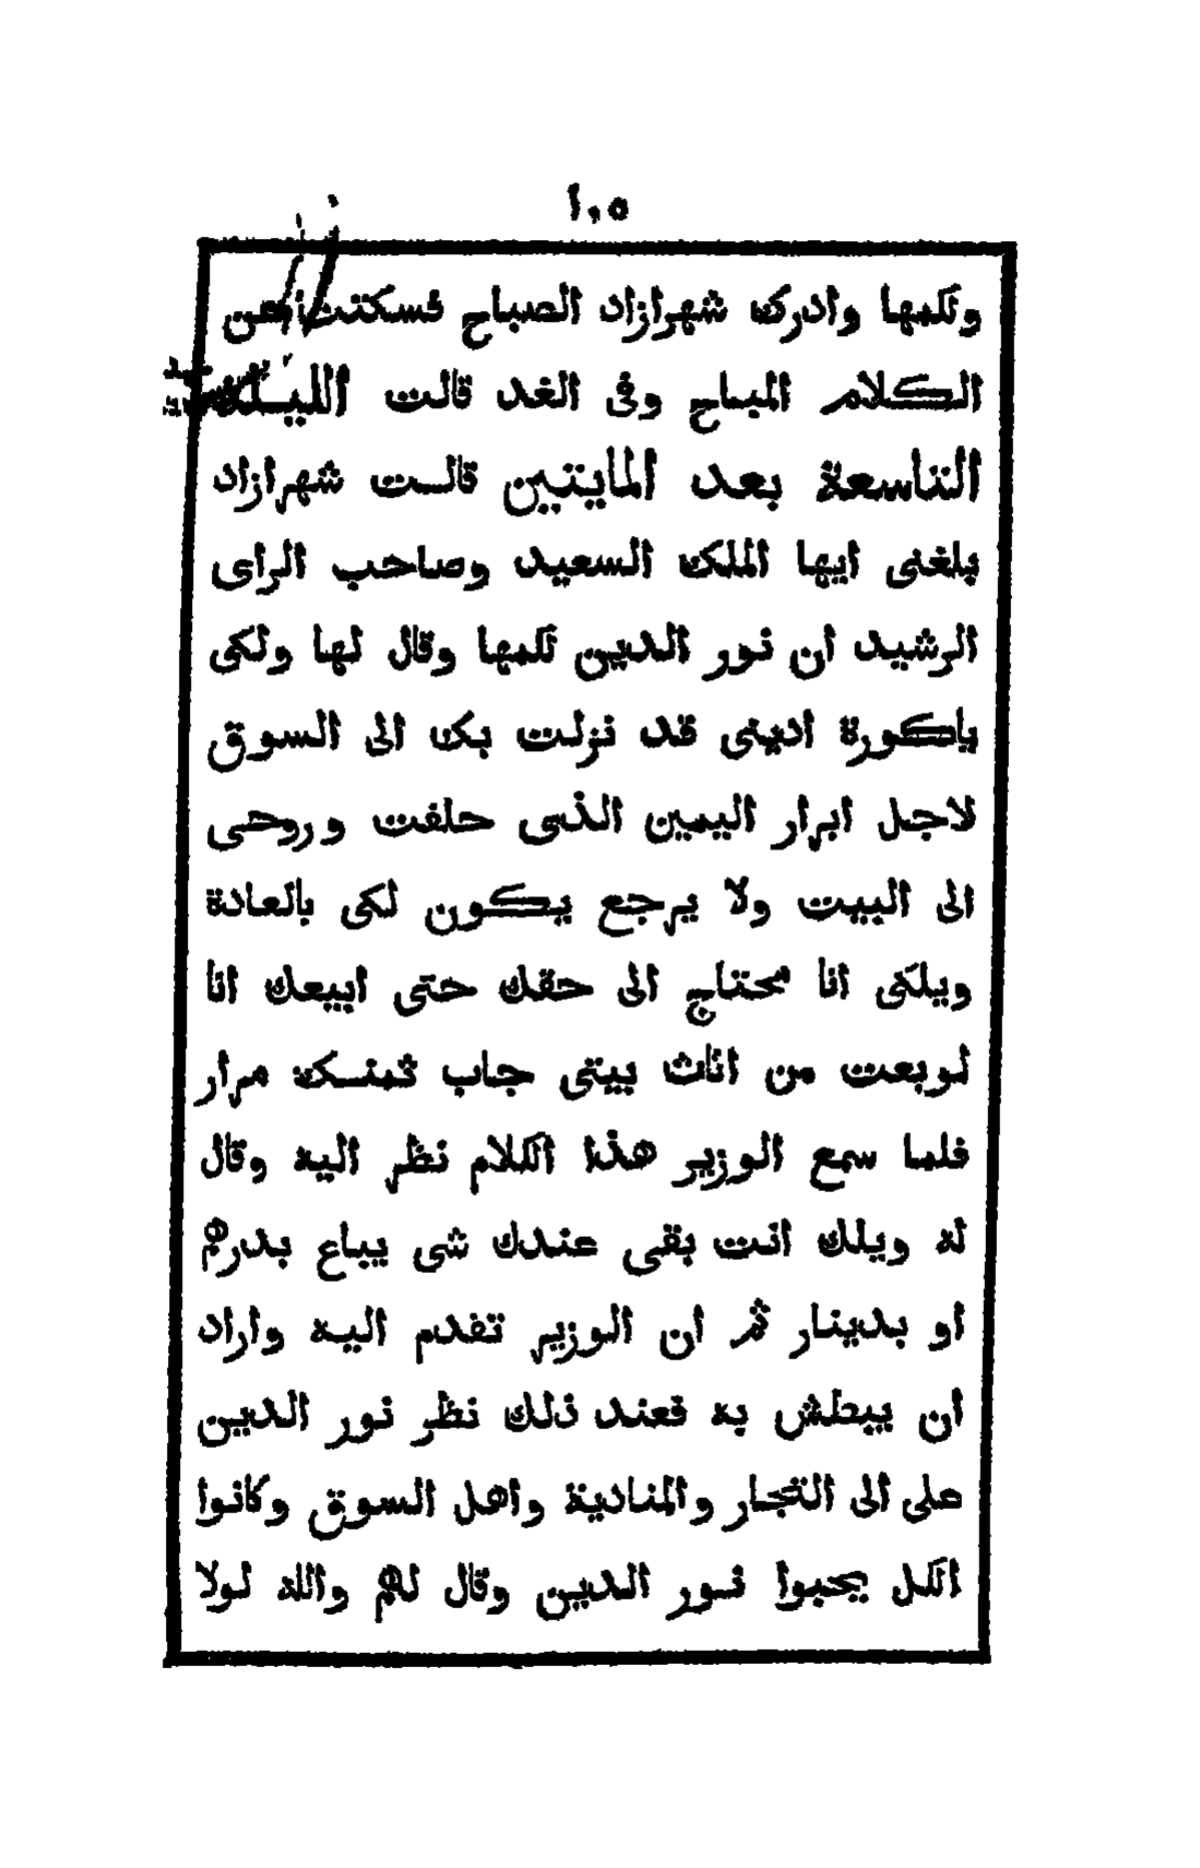 ١٠٥
ولكمها وادرك شهرازاد الصباح فسكتت عن
الكلام المباح وفى الغد قالت الليلة
التاسعة بعد المايتين قالت شهرازاد
بلغنى ايها الملك السعيد وصاحب الراى
الرشيد ان نور الدين لكمها وقال لها ولكى
ياكورة ادينى قد نزلت بك الى السوق
لاجل ابرار اليمين الذى حلفت وروحى
الى البيت ولا يرجع يكون لكى بالعادة
ويلكى انا محتاج الى حقك حتى ابيعك انا
لوبعت من اثاث بيتى جاب ثمنك مرار
فلما سمع الوزير هذا الكلام نظر اليه وقال
له ويلك انت بقى عندك شى يباع بدرهم
او بدينار ثم ان الوزير تقدم اليه واراد
ان يبطش به فعند ذلك نظر نور الدين
على الى التجار والمنادية واهل السوق وكانوا
الكل يحبوا نور الدين وقال لهم والله لولا